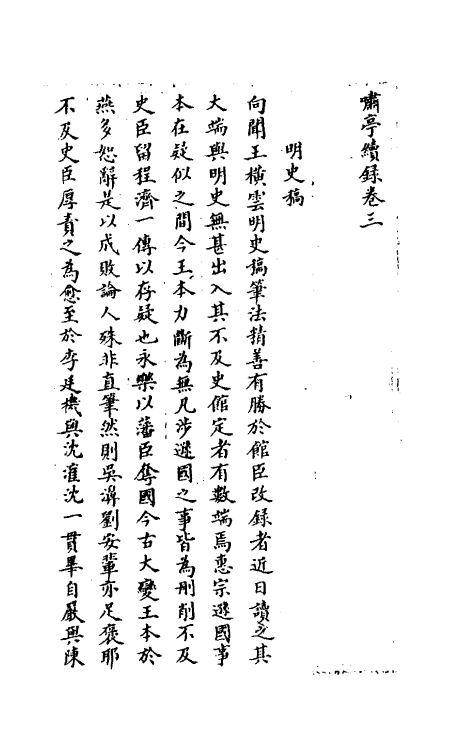 嘯亭續録卷三
明史稿
向聞王橫雲明史稿筆法精善有勝於館臣改録者近日讀之其
大端與明史無甚出入其不及史館定者有數端焉惠宗遜國事
本在疑似之間今王本力斷為無凡涉遜國之事皆為刪削不及
史臣留程濟一傳以存疑也永樂以藩臣奪國今古大變王本於
燕多恕辭是以成敗論人殊非直筆然則吳濞劉安輩亦足褒耶
不及史臣厚責之為愈至於李廷機與沈㴶沈一貫畢自嚴與陳